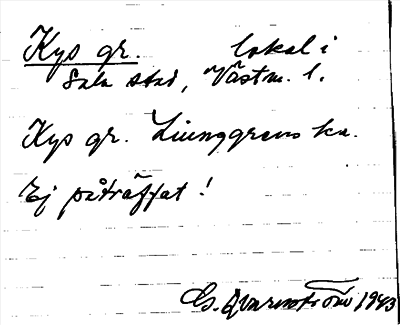 Kys gr. lokal i
Sala stad, Västm. l.
Kys gr. Ljunggrens ka.
Ej påträffat!
G. Qvarnström 1943